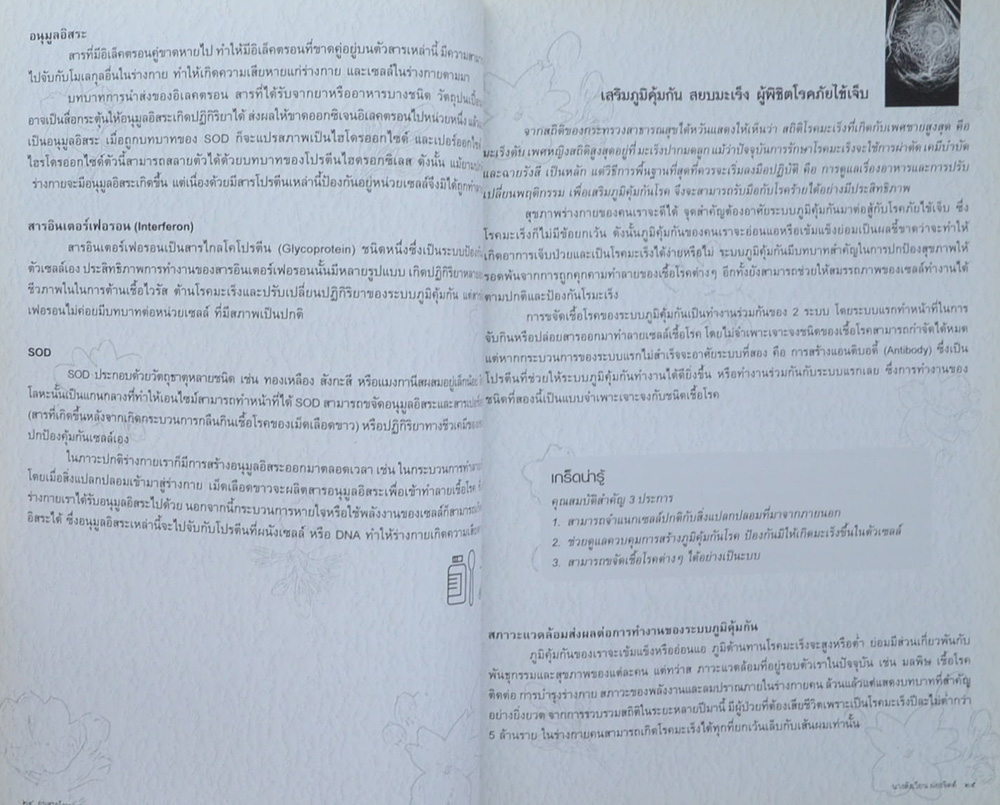 อนุมูลอิสระ
สารที่มีอิเล็คตรอนคู่ขาดหายไป ทำให้มีอิเล็คตรอนที่ขาดคู่อยู่บนตัวสารเหล่านี้ มีความ
ไปจับกับโมเลกุลอื่นในร่างกาย ทำให้เกิดความเสียหายแก่ร่างกาย และเซลล์ในร่างกายตามมา
บทบาทการนำส่งของอิเลคตรอน สารที่ได้รับจากยาหรืออาหารบางชนิด วัตถุปนเปื้อน
อาจเป็นสื่อกระตุ้นให้อนุมูลอิสระเกิดปฏิกิริยาได้ ส่งผลให้ขาดออกซิเจนอิเลคตรอนไปหน่วยหนึ่ง
เป็นอนุมูลอิสระ เมื่อถูกบทบาทของ SOD ก็จะแปรสภาพเป็นไฮโดรออกไซด์ และเปอร์ออกไซ
ไฮโดรออกไซด์ตัวนี้สามารถสลายตัวได้ด้วยบทบาทของโปรตีนไฮดรอกซิเลส ดังนั้น
ร่างกายจะมีอนุมูลอิสระเกิดขึ้น แต่เนื่องด้วยมีสารโปรตีนเหล่านี้ป้องกันอยู่หน่วยเซลล์จึงมิได้ถูกทำลาย
สารอินเตอร์เฟอรอน (Interferon)
สารอินเตอร์เฟอรอนเป็นสารไกลโคโปรตีน (Glycoprotein) ชนิดหนึ่งซึ่งเป็นระบบป้องกัน
ตัวเซลล์เอง ประสิทธิภาพการทำงานของสารอินเตอร์เฟอรอนนั้นมีหลายรูปแบบ เกิดปฏิกิริยาหลาย
ชีวภาพในในการต้านเชื้อไวรัส ต้านโรคมะเร็งและปรับเปลี่ยนปฏิกิริยาของระบบภูมิคุ้มกัน
เฟอรอนไม่ค่อยมีบทบาทต่อหน่วยเซลล์ ที่มีสภาพเป็นปกติ
SOD
SOD ประกอบด้วยวัตถุธาตุหลายชนิด เช่น ทองเหลือง สังกะสี หรือแมงกานีสผสมอยู่เล็กน้อย
โลหะนั้นเป็นแกนกลางที่ทำให้เอนไซม์สามารถทำหน้าที่ได้ SOD สามารถขจัดอนุมูลอิสระและสาร
(สารที่เกิดขึ้นหลังจากเกิดกระบวนการกลืนกินเชื้อโรคของเม็ดเลือดขาว) หรือปฏิกิริยาทางชีวเคมี
ปกป้องคุ้มกันเซลล์เอง
ในภาวะปกติร่างกายเราก็มีการสร้างอนุมูลอิสระออกมาตลอดเวลา เช่น ในกระบวนการทำลาย
โดยเมื่อสิ่งแปลกปลอมเข้ามาสู่ร่างกาย เม็ดเลือดขาวจะผลิตสารอนุมูลอิสระเพื่อเข้าทำลายเชื้อโรค
ร่างกายเราได้รับอนุมูลอิสระไปด้วย นอกจากนี้กระบวนการหายใจหรือใช้พลังงานของเซลล์ก็สามารถ
อิสระได้ ซึ่งอนุมูลอิสระเหล่านี้จะไปจับกับโปรตีนที่ผนังเซลล์ หรือ DNA ทำให้ร่างกายเกิดความ
เสริมภูมิคุ้มกัน สยบมะเร็ง ผู้พิชิตโรคภัยไข้เจ็บ
จากสถิติของกระทรวงสาธารณสุขไต้หวันแสดงให้เห็นว่า สถิติโรคมะเร็งที่เกิดกับเพศชายสูงสุด คือ
มะเร็งตับ เพศหญิงสถิติสูงสุดอยู่ที่ มะเร็งปากมดลูก แม้ว่าปัจจุบันการรักษาโรคมะเร็งจะใช้การผ่าตัด เคมีบำบัด
และฉายรังสี เป็นหลัก แต่วิธีการพื้นฐานที่สุดที่ควรจะเริ่มลงมือปฏิบัติ คือ การดูแลเรื่องอาหารและการปรับ
เปลี่ยนพฤติกรรม เพื่อเสริมภูมิคุ้มกันโรค จึงจะสามารถรับมือกับโรคร้ายได้อย่างมีประสิทธิภาพ
สุขภาพร่างกายของคนเราจะดีได้ จุดสำคัญต้องอาศัยระบบภูมิคุ้มกันมาต่อสู้กับโรคภัยไข้เจ็บ ซึ่ง
โรคมะเร็งก็ไม่มีข้อยกเว้น ดังนั้นภูมิคุ้มกันของคนเราจะอ่อนแอหรือเข้มแข็งย่อมเป็นผลชี้ขาดว่าจะทำให้
เกิดอาการเจ็บป่วยและเป็นโรคมะเร็งได้ง่ายหรือไม่ ระบบภูมิคุ้มกันมีบทบาทสำคัญในการปกป้องสุขภาพให้
รอดพ้นจากการถูกคุกคามทำลายของเชื้อโรคต่างๆ อีกทั้งยังสามารถช่วยให้สมรรถภาพของเซลล์ทำงานได้
ตามปกติและป้องกันโรมะเร็ง
การขจัดเชื้อโรคของระบบภูมิคุ้มกันเป็นทำงานร่วมกันของ 2 ระบบ โดยระบบแรกทำหน้าที่ในการ
จับกินหรือปล่อยสารออกมาทำลายเซลล์เชื้อโรค โดยไม่จำเพาะเจาะจงชนิดของเชื้อโรคสามารถกำจัดได้หมด
แต่หากกระบวนการของระบบแรกไม่สำเร็จจะอาศัยระบบที่สอง คือ การสร้างแอนติบอดี้ (Antibody) ซึ่งเป็น
โปรตีนที่ช่วยให้ระบบภูมิคุ้มกันทำงานได้ดียิ่งขึ้น หรือทำงานร่วมกันกับระบบแรกเลย ซึ่งการทำงานของ
ชนิดที่สองนี้เป็นแบบจำเพาะเจาะจงกับชนิดเชื้อโรค
เกร็ดน่ารู้
คุณสมบัติสำคัญ 3 ประการ
1. สามารถจำแนกเซลล์ปกติกับสิ่งแปลกปลอมที่มาจากภายนอก
2. ช่วยดูแลควบคุมการสร้างภูมิคุ้มกันโรค ป้องกันมิให้เกิดมะเร็งขึ้นในตัวเซลล์
3. สามารถขจัดเชื้อโรคต่างๆ ได้อย่างเป็นระบบ
สภาวะแวดล้อมส่งผลต่อการทำงานของระบบภูมิคุ้มกัน
ภูมิคุ้มกันของเราจะเข้มแข็งหรืออ่อนแอ ภูมิต้านทานโรคมะเร็งจะสูงหรือต่ำ ย่อมมีส่วนเกี่ยวพันกับ
พันธุกรรมและสุขภาพของแต่ละคน แต่ทว่าส ภาวะแวดล้อมที่อยู่รอบตัวเราในปัจจุบัน เช่น มลพิษ เชื้อโรค
ติดต่อ การบำรุงร่างกาย สภาวะของพลังงานและลมปราณภายในร่างกายคน ล้วนแล้วแต่แสดงบทบาทที่สำคัญ
อย่างยิ่งยวด จากการรวบรวมสถิติในระยะหลายปีมานี้ มีผู้ป่วยที่ต้องเสียชีวิตเพราะเป็นโรคมะเร็งปีละไม่ต่ำกว่า
5 ล้านราย ในร่างกายคนสามารถเกิดโรคมะเร็งได้ทุกที่ยกเว้นเล็บกับเส้นผมเท่านั้น
๒๕